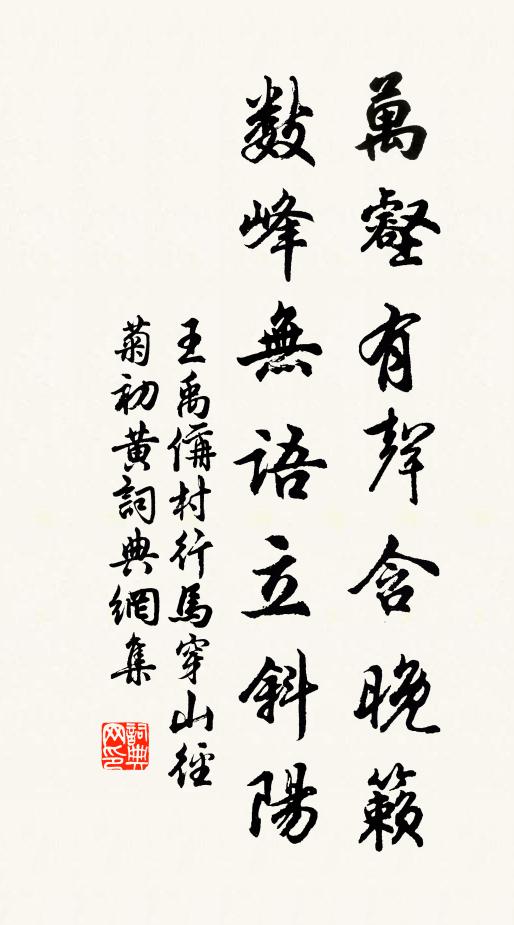 萬壑有聲含晚籟
數峰無語立斜陽
王禹偁村行馬穿山徑
菊初黃詞典網集
詞典网印